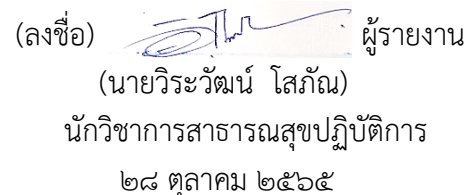 (ลงชื่อ) ผู้รายงาน
(นายวิระวัฒน์ โสภัณ)
นักวิชาการสาธารณสุขปฏิบัติการ
๒๘ ตุลาคม ๒๕๖๕